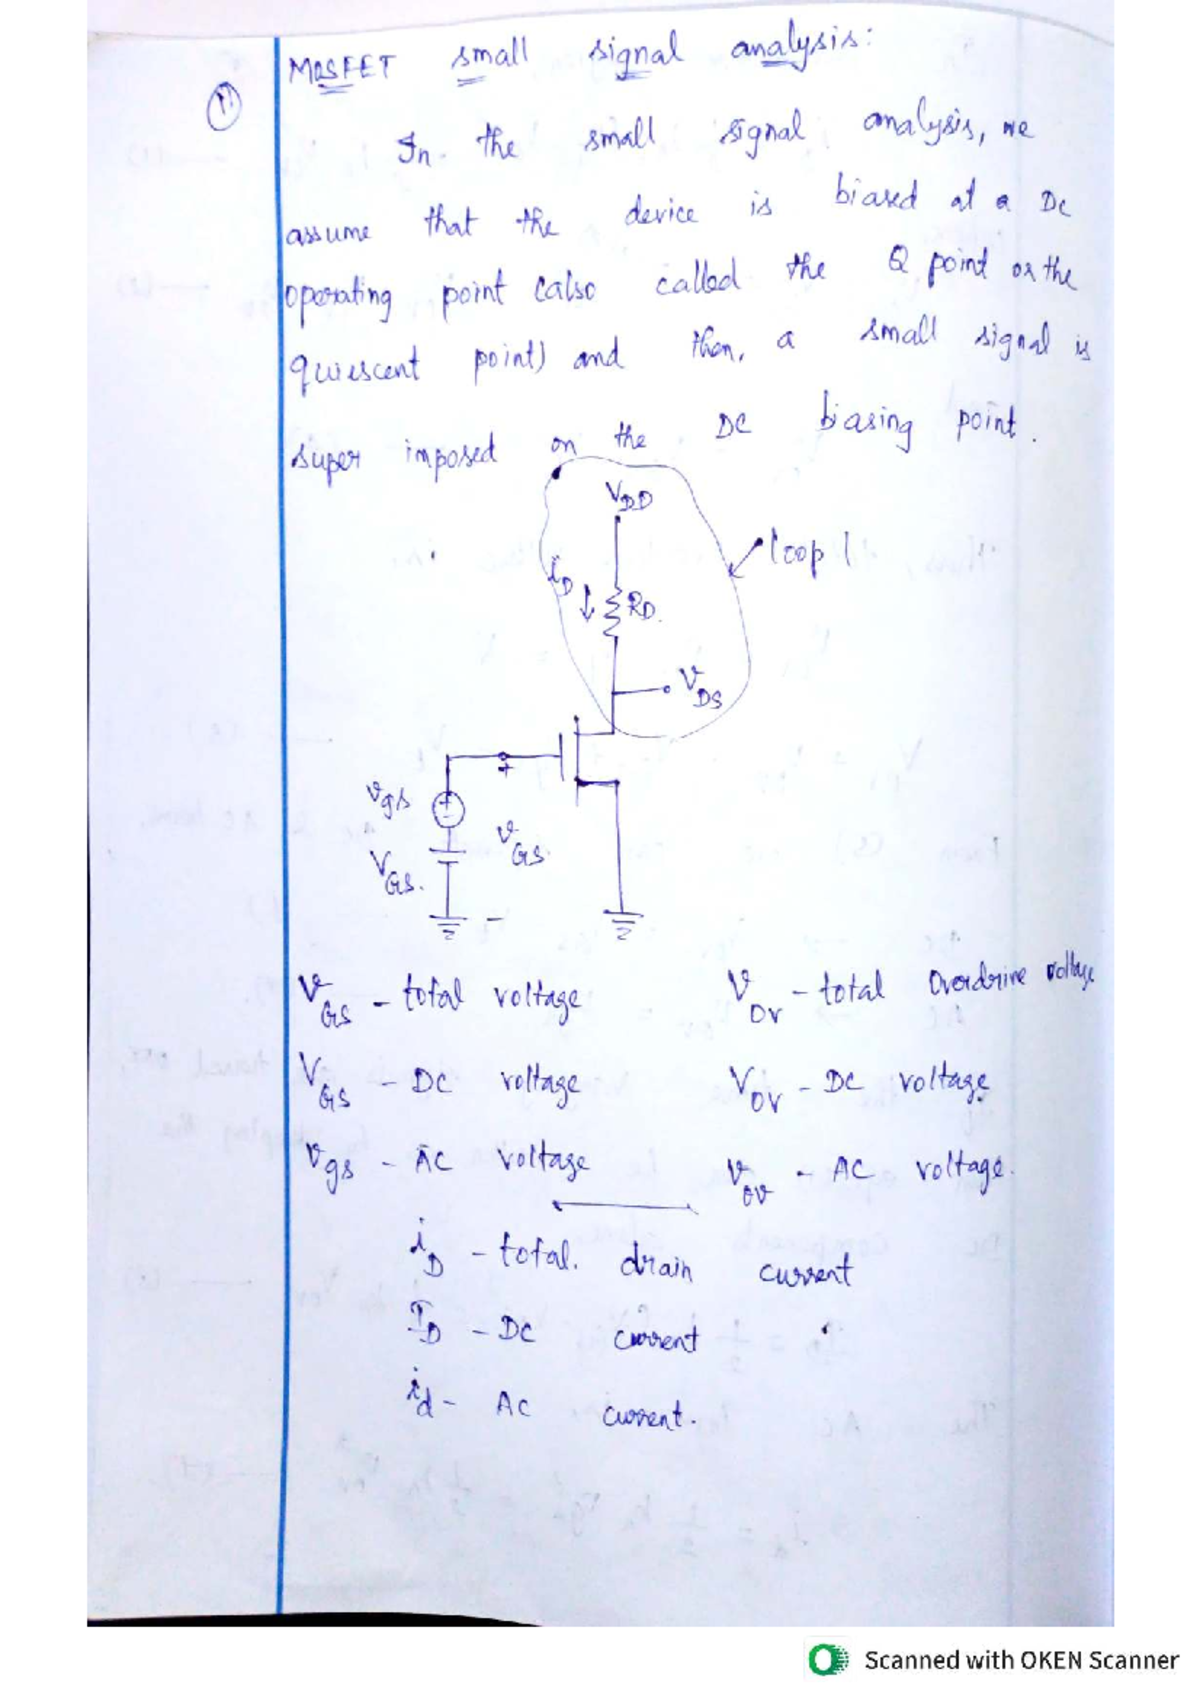 11
MOSFET small signal analysis:
In the small signal analysis, we
assume that the device is biased at a DC
operating point (also called the Q point or the
quiescent point) and then, a small signal is
super imposed on the DC biasing point.
VDD
loop 1
iD
RD.
vDS
+
vgs
+
-
vGS
VGS.
-
vGS - total voltage
vOV - total Overdrive voltage
VGS - DC voltage
VOV - DC voltage
vgs - AC voltage
vov - AC voltage.
iD - total. drain current
ID - DC current
id - AC current.
Scanned with OKEN Scanner